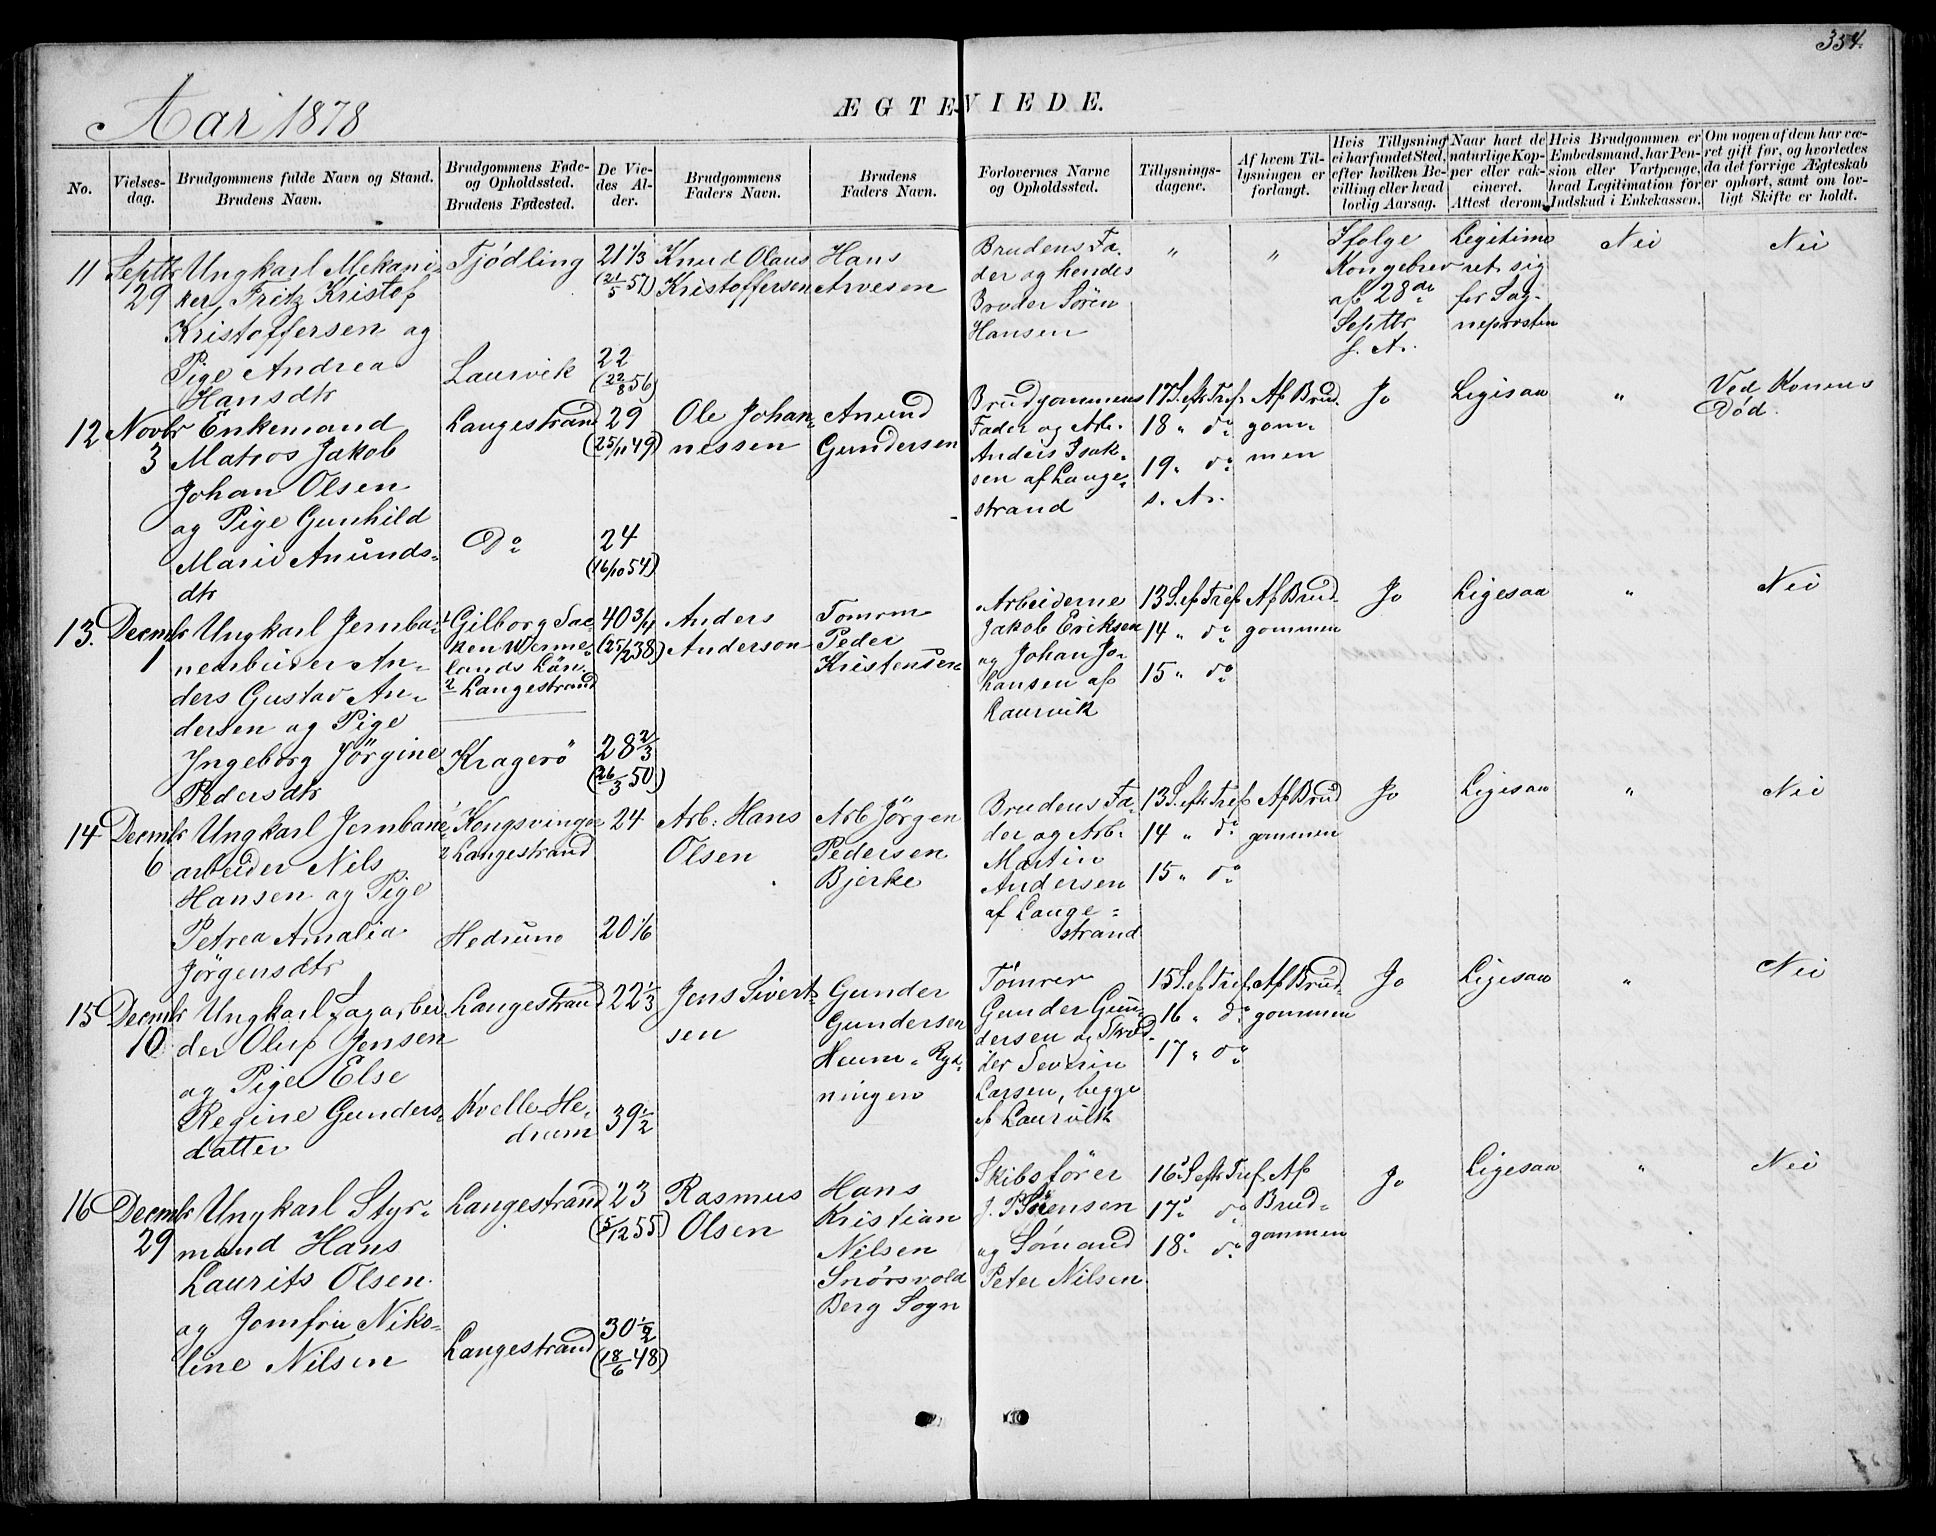 354.
Aar 1878
ÆGTEVIEDE.
No.
Vielses-
dag.
Brudgommens fulde Navn og Stand.
Brudens Navn.
Brudgommens Føde-
og Opholdssted.
Brudens Fødested.
De Vie-
des Al-
der.
Brudgommens
Faders Navn.
Brudens
Faders Navn.
Forlovernes Navne
og Opholdssted.
Tillysnings-
dagene.
Af hvem Til-
lysningen er
forlangt.
Hvis Tillysning
ei har fundet Sted,
efter hvilken Be-
villing eller hvad
lovlig Aarsag.
Naar havt de
naturlige Kop-
per eller vak-
cineret.
Attest derom.
Hvis Brudgommen er
Embedsmand, har Pen-
sion eller Vartpenge,
hvad Legitimation for
Indskud i Enkekassen.
Om nogen af dem har væ-
ret gift før, og hvorledes
da det forrige Ægteskab
er ophørt, samt om lov-
ligt Skifte er holdt.
11
Septbr
29
Ungkarl Mekani-
ker, Fritz Kristof
Kristoffersen og
Pige Andrea
Hansdtr
Tjödling
Laurvik
21 1/3
(21/5 57)
22
(22/8 56)
Knud Olaus
Kristoffersen
Hans
Arvesen
Brudens Fa-
der og hendes
Broder Sören
Hansen
"
"
Ifölge
Kongebrev
af 28de
Septbr
s. A.
Legitime
ret sig
for Sog-
neprosten
Nei
Nei
12
Novbr
3
Enkemand
Matros Jakob
Johan Olsen
og Pige Gunhild
Marie Anunds-
dtr
Langestrand
Do
29
(25/11 49)
24
(16/10 54)
Ole Johan-
nessen
Anund
Gundersen
Brudgommens
Fader og Arb.
Anders Isak-
sen af Lange-
strand
17 S. eft Tref.
18 " do
19 " do
s. A.
Af Brud-
gom-
men
Jo
Ligesaa
"
Ved Konens
Död.
13.
Decmbr
1
Ungkarl Jernba-
nearbeider An-
ders Gustav An-
dersen og Pige
Ingeborg Jörgine
Pedersdtr
1 Gilborg Soc-
ken Werme-
lands Län.
2 Langestrand
Kragerö
40 3/4
(25/2 38)
28 2/3
(26/3 50)
Anders
Anderson
Tomrm
Peder
Kristensen
Arbeiderne
Jakob Eriksen
og Johan Jo-
hansen af
Laurvik
13 S. ef Tref
14 " do
15 " do
Af Brud-
gommen
Jo
Ligesaa
"
Nei
14
Decmbr
6
Ungkarl Jernbane
arbeider Nils
Hansen og Pige
Petrea Amalia
Jörgensdtr
1 Kongsvinger
2 Langestrand
Hedrum
24
20 1/6
Arb: Hans
Olsen
Arb Jörgen
Pedersen
Bjerke
Brudens Fa-
der og Arb:
Martin
Andersen
af Lange-
strand
13 S. eft Tref
14 " do
15 " do
Af Brud
gommen
Jo
Ligesaa
"
Nei
15
Decmbr
10
Ungkarl Sagarbei-
der Oluf Jensen
og Pige Else
Regine Gunders-
datter
Langestrand
Kvelle-He-
drum
22 1/3
39 1/2
Jens Sivert-
sen
Gunder
Gundersen
Heum-Ryd-
ningen
Tömrer
Gunder Gun-
dersen og Skræd-
der Severin
Larsen, begge
af Laurvik
15 S. ef Tref
16 " do
17 " do
Af Brud-
gommen
Jo
Ligesaa
"
Nei
16
Decmbr
29
Ungkarl Styr-
mand Hans
Laurits Olsen
og Jomfru Niko-
line Nilsen
Langestrand
Langestrand
23
(5/12 55)
30 1/2
(18/6 48)
Rasmus
Olsen
Hans
Kristian
Nilsen
Snörsvold
Berg Sogn
Skibsförer
J. P. Sörensen
og Sömand
Peter Nilsen
16 S eft Tref
17 do
18 do
Af
Brud-
gommen
Jo
Ligesaa
"
Nei